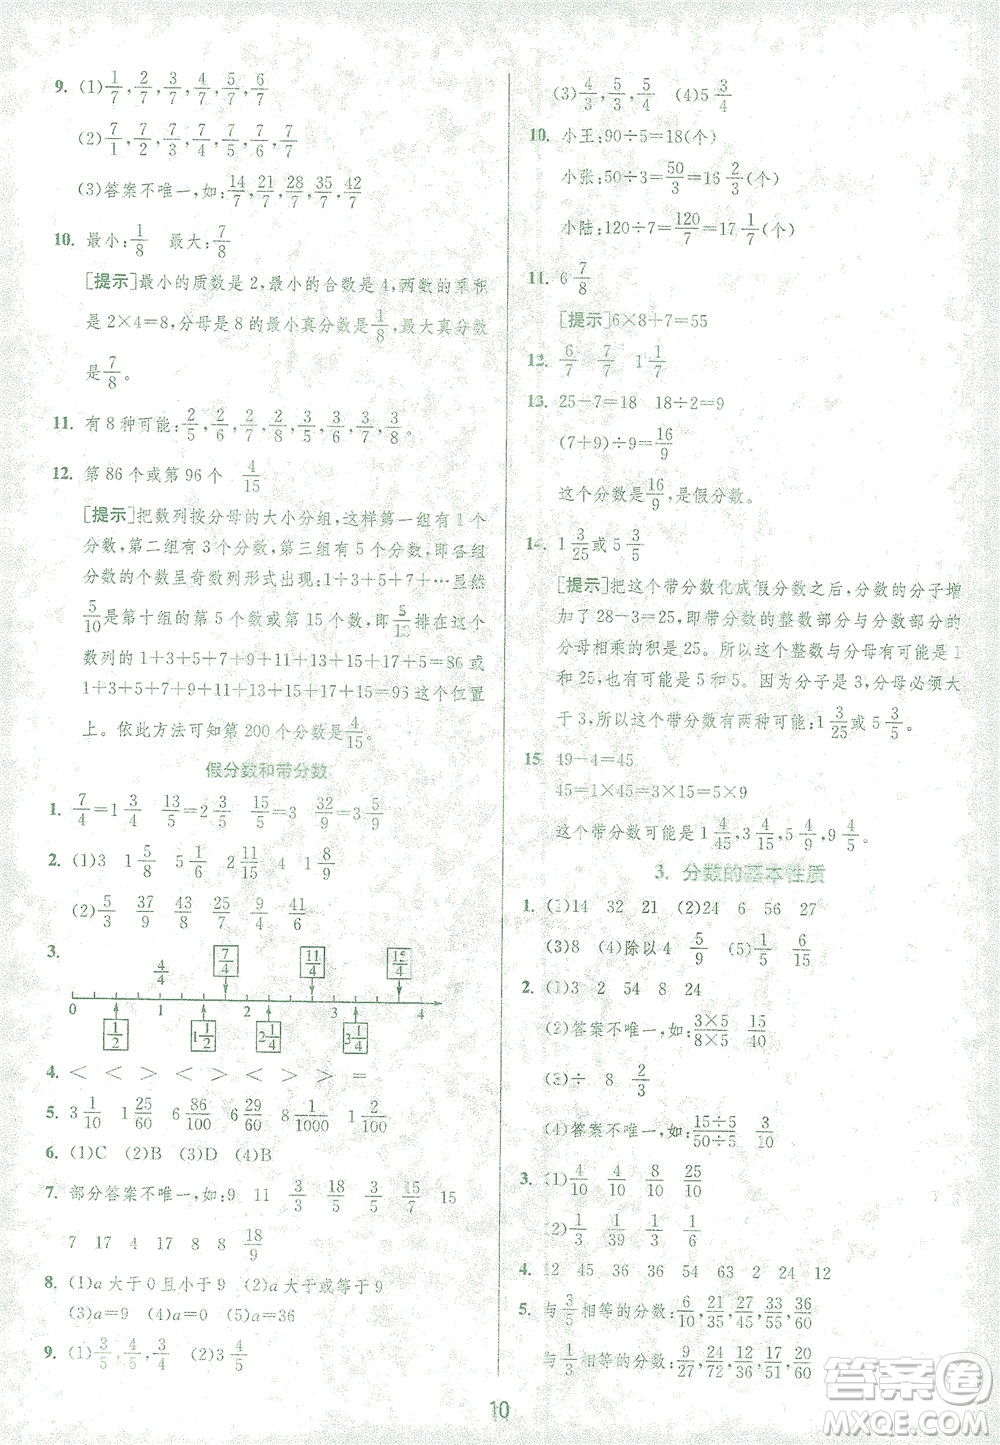 9. (1) 1/7, 2/7, 3/7, 4/7, 5/7, 6/7
(2) 7/1, 7/2, 7/3, 7/4, 7/5, 7/6, 7/7
(3)答案不唯一,如: 14/7, 21/7, 28/7, 35/7, 42/7
10. 最小: 1/8 最大: 7/8
[提示]最小的质数是2,最小的合数是4,两数的乘积
是2×4=8,分母是8的最小真分数是1/8,最大真分数
是7/8。
11. 有8种可能: 2/5, 2/6, 2/7, 2/8, 3/5, 3/6, 3/7, 3/8。
12. 第86个或第96个 4/15
[提示]把数列按分母的大小分组,这样第一组有1个
分数,第二组有3个分数,第三组有5个分数,即各组
分数的个数呈奇数列形式出现:1+3+5+7+…显然
5/10是第十组的第5个数或第15个数,即5/10排在这个
数列的1+3+5+7+9+11+13+15+17+5=86或
1+3+5+7+9+11+13+15+17+15=96这个位置
上。依此方法可知第200个分数是4/15。
假分数和带分数
1. 7/4=1 3/4 13/5=2 3/5 15/5=3 32/9=3 5/9
2. (1)3 1 5/8 5 1/6 2 4/5 1 8/9
(2) 5/3 37/9 43/8 9/4 41/6
3.
4/4 7/4 11/4 15/4
0 1 2 3 4
1/2 1 1/2 2 1/4 3 1/4
4. < < > < < > > =
5. 3 1/10 1 25/60 6 86/100 6 29/60 8 1/1000 1 2/100
6. (1)C (2)B (3)D (4)B
7. 部分答案不唯一,如:9 11 3/3 18/5 3/5 15/7 15
7 17 4 17 8 8 18/9
8. (1)a大于0且小于9 (2)a大于或等于9
(3)a=9 (4)a=18 (5)a=36
9. (1) 3/5, 4/5, 3/4 (2)3 4/5
(3) 4/3, 5/3, 5/4 (4)5 3/4
10. 小王:90÷5=18(个)
小张:50÷3=50/3=16 2/3(个)
小陆:120÷7=120/7=17 1/7(个)
11. 6 7/8
[提示]6×8+7=55
12. 6/7 7/7 1 1/7
13. 25-7=18 18÷2=9
(7+9)÷9=16/9
这个分数是16/9,是假分数。
14. 1 3/25或5 3/5
[提示]把这个带分数化成假分数之后,分数的分子增
加了28-3=25,即带分数的整数部分与分数部分的
分母相乘的积是25。所以这个整数与分母有可能是1
和25,也有可能是5和5。因为分子是3,分母必须大
于3,所以这个带分数有两种可能:1 3/25或5 3/5。
15 49-4=45
45=1×45=3×15=5×9
这个带分数可能是1 4/45, 3 4/15, 5 4/9, 9 4/5。
3. 分数的基本性质
1. (1)14 32 21 (2)24 6 56 27
(3)8 (4)除以4 5/9 (5) 1/5 6/15
2. (1)3 2 54 8 24
(2)答案不唯一,如: 3×5/8×5 15/40
(3)÷ 8 2/3
(4)答案不唯一,如: 15÷5/50÷5 3/10
3. (1) 4/10 4/10 8/20 10/25
(2) 1/3 1/3 1/3
4. 12 45 36 54 63 2 24 12
5. 与3/5相等的分数: 6/10, 21/35, 27/45, 33/55, 36/60
与1/3相等的分数: 9/27, 7/21, 12/36, 17/51, 20/60
10
答案圈
MXQE.COM